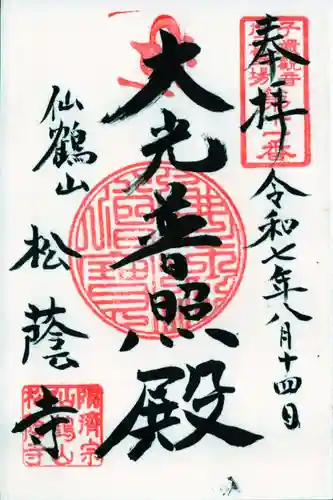 奉拝
令和七年八月十四日
大光普照殿
仙鶴山
松蔭寺
臨済宗
仙鶴山
松蔭寺